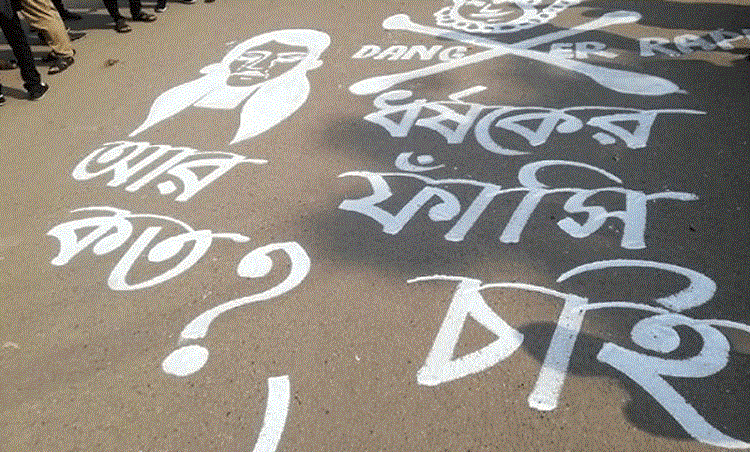 DANGER RAP
আর
কত?
ধর্ষকের
ফাঁসি
চাই